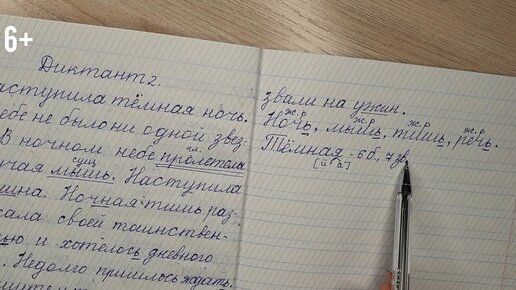 6+
Диктант 2.
аступила тёмная ночь.
ебе не было ни одной звез-
В ночном небе пролетела
гл.
учая мышь. Наступила
сущ.
шина. Ночная тишь раз-
сала своей таинствен-
ью и хотелось дневного
. Недолго пришлось ждать.
звали на ужин.
ж.р ж.р ж.р ж.р
Ночь, мышь, тишь, речь.
Тёмная - 6 б, 7 зв
[й'а]